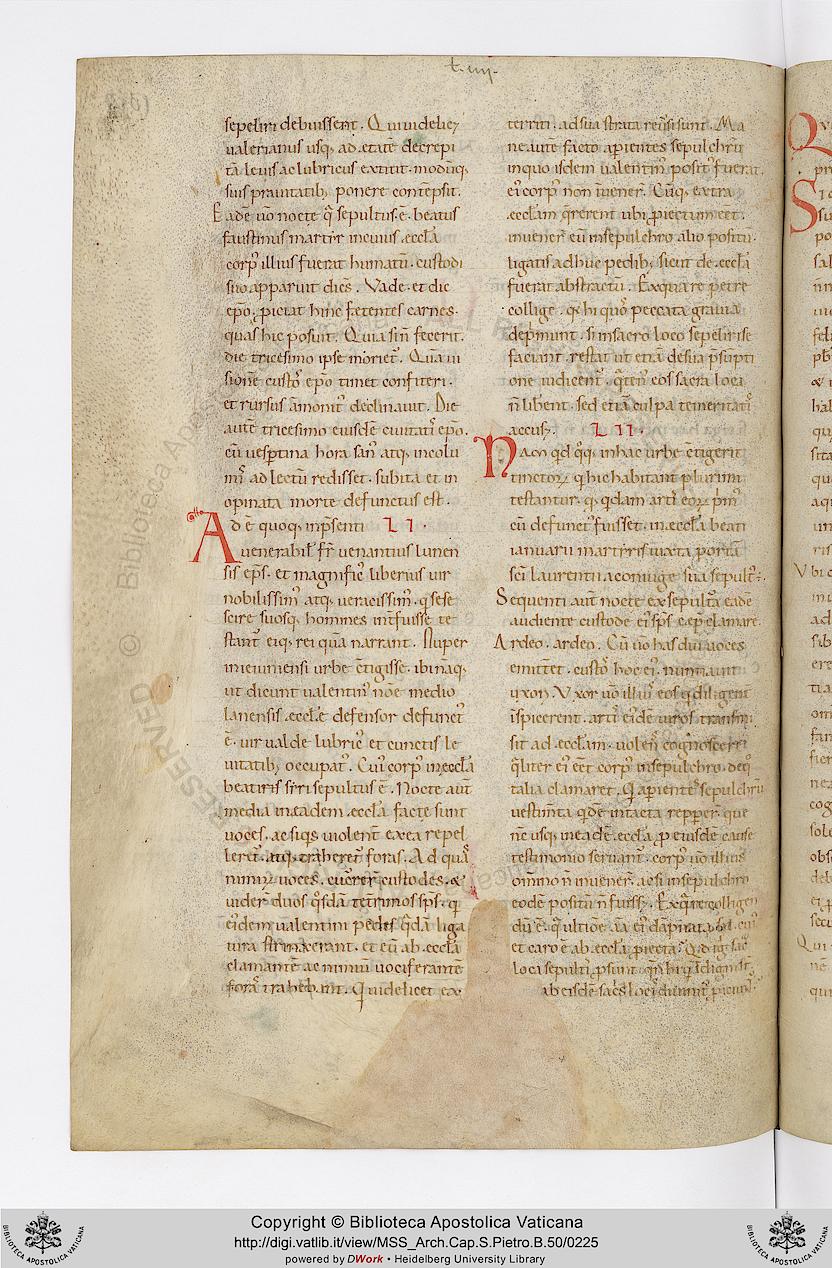 t. iiii.
sepeliri debuissent. Qui videlicet
valerianus usq; ad etatē decrepi
tā levis ac lubricus extitit. modūq;
suis pravitatib; ponere contēpsit.
Eadē ṽo nocte q̄ sepultus ē. beatus
faustinus martyr incuius ęccła
corp᾽ illius fuerat humatū. custodi
suo apparuit dicēs. Vade. et dic
ep̄o. piciat hinc fętentes carnes.
quas hic posuit. Quia si ñ fecerit.
die tricesimo ipse moriet᾽. Quā vi
sionē custos ep̄o timet confiteri.
et rursus āmonit᾽ declinavit. Die
autē tricesimo eiusdē civitatis ep̄o.
cū vesptina hora san᾽ atq; incolu
mis ad lectū redisset. subita et in
opinata morte defunctus est.
Ad ē quoq; inp̄senti LI.
venerabił fr̄ venantius lunen
sis ep̄s. et magnific᾽ liberius vir
nobilissim᾽ atq; veracissim᾽. q̄ sese
scire suosq; homines int̄fuisse te
stant᾽ eiq; rei quā narrant. Nuper
in ienuensi urbe c̄tigisse. ibi naq;
ut dicunt valentin᾽ nōe medio
lanensis ęccłę defensor defunct᾽
ē. vir valde lubric᾽ et cunctis le
vitatib; occupat᾽. Cui᾽ corp᾽ in ęccła
beati syri sepultus ē. Nocte aūt
media in eadem ęccła factę sunt
voces. ac siq̄s violent᾽ ex ea repel
leret᾽. atq; traheret᾽ foras. Ad quas
nimirū voces. cucurrer̄ custodes. &
viderūt duos q̄sdā tet̄rimos sp̄s. q̄
ei᾽dem valentini pedes q̄dā liga
tura strinxerant. et eū ab ęccła
clamantē ac nimiū vociferantē
foras trahebant. Qui videlicet ex
territi. ad sua strata rev̄si sunt. Ma
ne aūtē facto apientes sepulchrū
in quo isdem valentin᾽ posit᾽ fuerat.
ei᾽ corp᾽ non īvener̄. Cūq; extra
ęccłam q̄rerent ubi piectum eēt.
invener̄ eū insepulchro alio positū.
ligatis adhuc pedib; sicut de ęccła
fuerat abstractū. Ex qua re petre
collige. q̄a hi quos peccata gravia
dep̄munt. si in sacro loco sepeliri se
faciant. restat ut etiā de sua p̄sūpti
one iudicent᾽. q̄ten᾽ eos sacra loca
ñ liberent. sed etiā culpa temeritatis
accuset. LII.
Nam qd̄ q̄q; in hac urbe c̄tigerit
tinctorū q̄ hic habitant plurimi
testantur. q̄ q̄dam artis eorū p̄m᾽
cū defunct᾽ fuisset. in ęccła beati
ianuarii martyris iuxta portā
sc̄i laurentii a coniuge sua sepult᾽.
Sequenti aūt nocte ex sepult̄a eadē
audiente custode ei᾽ sp̄s cępit clamare.
Ardeo. ardeo. Cū ṽo has diu voces
emitt̄et. custos hoc ei᾽ nuntiavit
uxori. Uxor ṽo illi᾽ eos q̄ diligent᾽
īspicerent. artis ei᾽dē viros transmi
sit ad ęccłam. volens cognoscere
q̄liter ei᾽ eēt corp᾽ in sepulchro. de q᾽
talia clamaret. Qi apientes sepulchrū
vestim̄ta q̄dē intacta repper̄. quę
nc̄ usq; in eadē ęccła p̄ eiusdē causę
testimonio servant᾽. corp᾽ ṽo illius
omnino ñ invener̄. ac si in sepulchro
eodē positū ñ fuisset. Ex q̄ re colligen
dū ē. q̄ ultione aīa ei᾽ dāpnata sit. cui᾽
et caro ē ab ęccła piecta. Qd̄ ig᾽ sac̄
loca sepultis p̄sunt
ab eisdē sac̄s locis divinit᾽ piciunt᾽.
Copyright © Biblioteca Apostolica Vaticana
http://digi.vatlib.it/view/MSS_Arch.Cap.S.Pietro.B.50/0225
powered by DWork • Heidelberg University Library